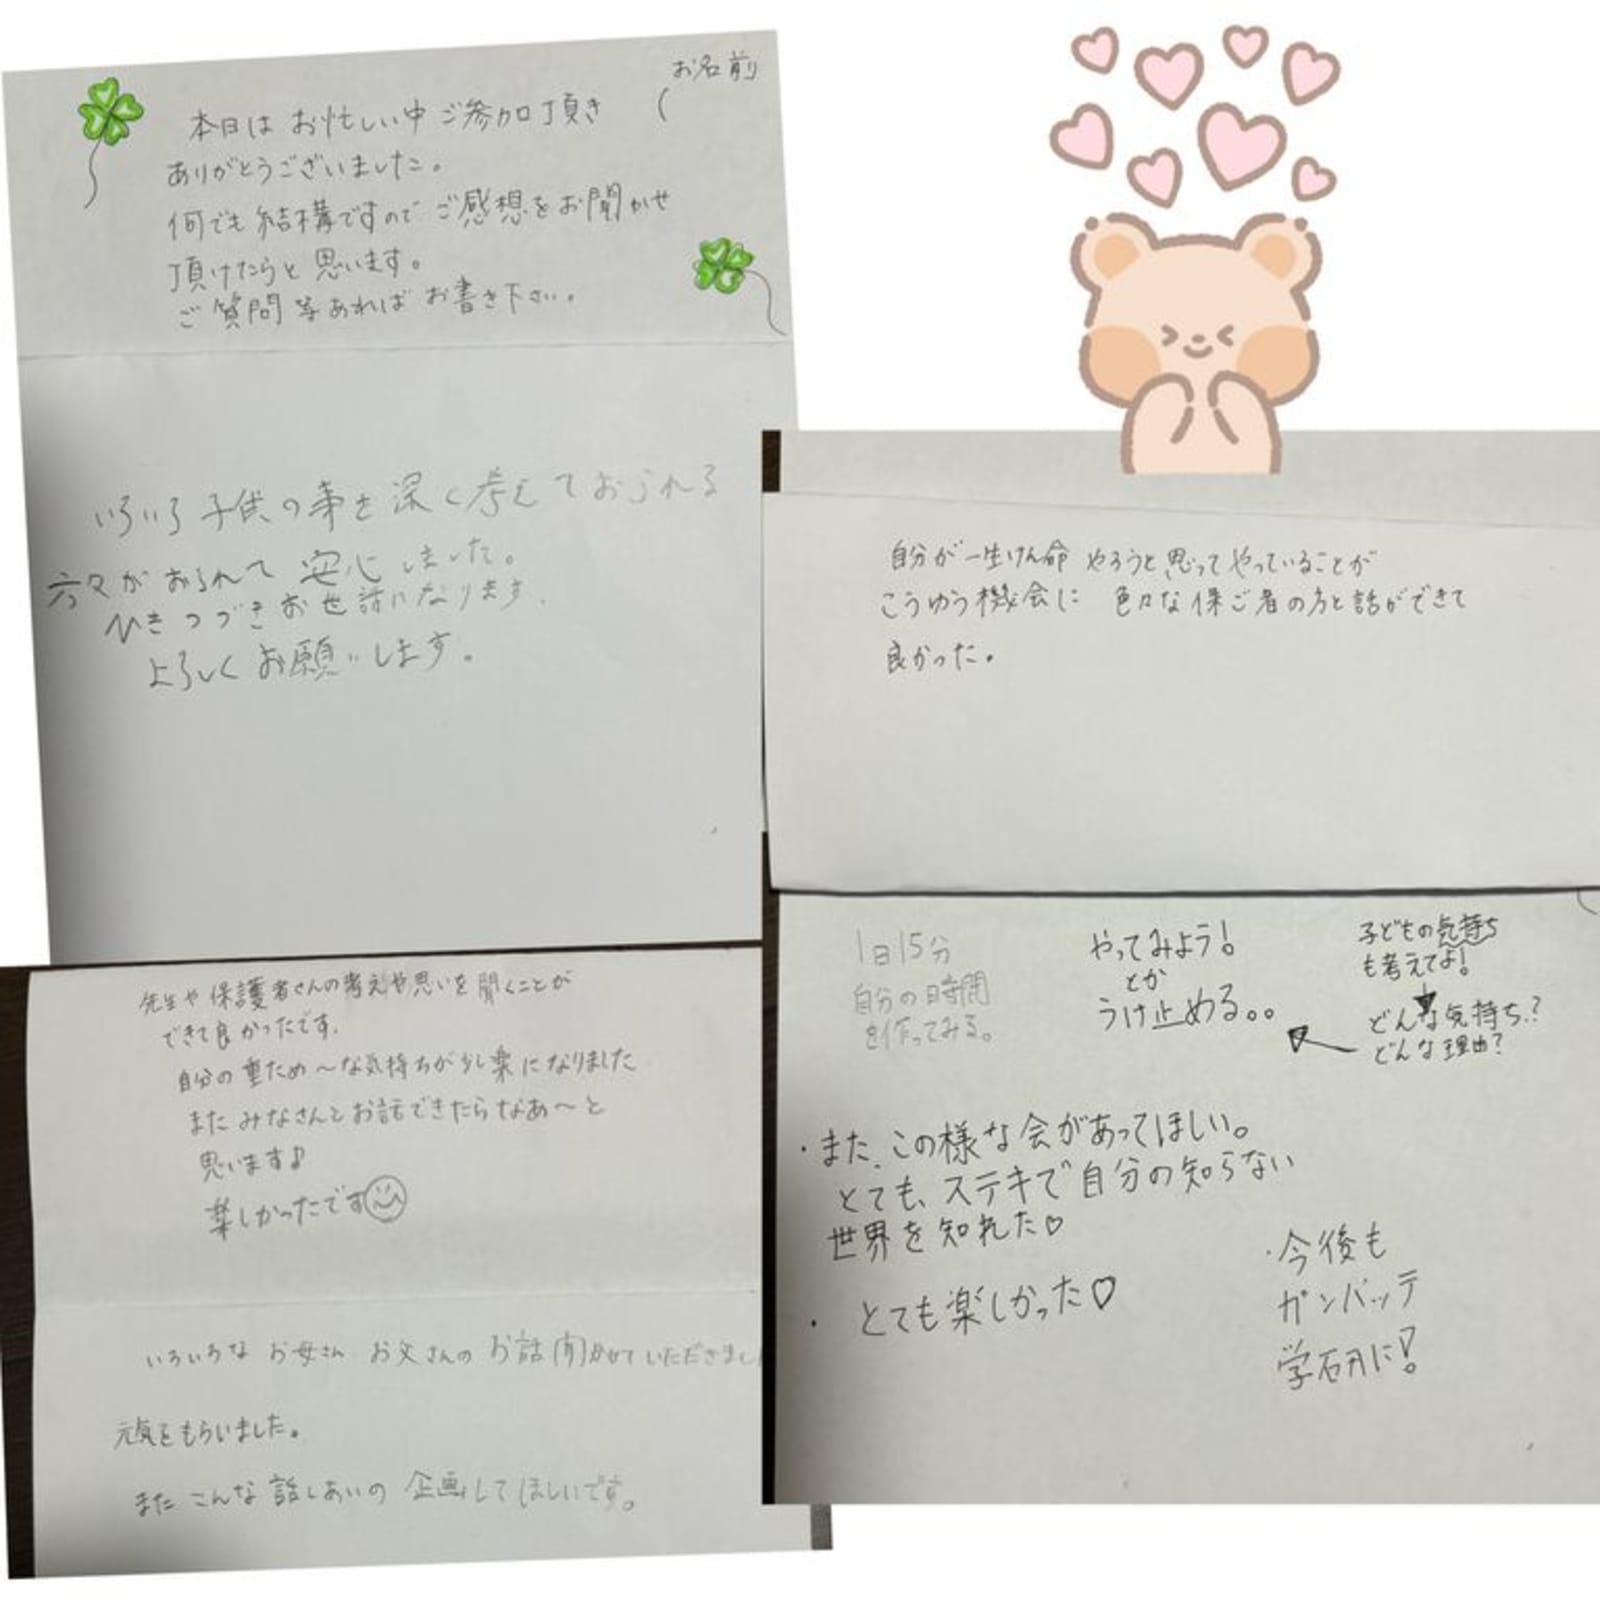 お名前
本日は お忙しい中 ご参加頂き
ありがとうございました。
何でも結構ですので ご感想をお聞かせ
頂けたらと 思います。
ご質問等あれば お書き下さい。
いろいろ子供の事を深く考えておられる
方々が おられて 安心しました。
ひきつづきお世話になります.
よろしくお願いします。
自分が一生けん命 やろうと思ってやっていることが
こうゆう機会に 色々な保ご者の方と話ができて
良かった。
先生や保護者さんの考えや思いを聞くことが
できて良かったです.
自分の重ため〜な気持ちが少し楽になりました
またみなさんとお話できたらなあ〜と
思います♪
楽しかったです
いろいろな お母さん お父さんの お話聞かせていただきまし
元気をもらいました。
また こんな 話しあいの 企画してほしいです。
1日15分
自分の時間
を作ってみる。
やってみよう!
とか
うけ止める。。
子どもの気持ち
も考えてよ!
どんな気持ち?
どんな理由?
・また、この様な会があってほしい。
とても、ステキで自分の知らない
世界を知れた♡
・とても楽しかった♡
・今後も
ガンバッテ
学研に!